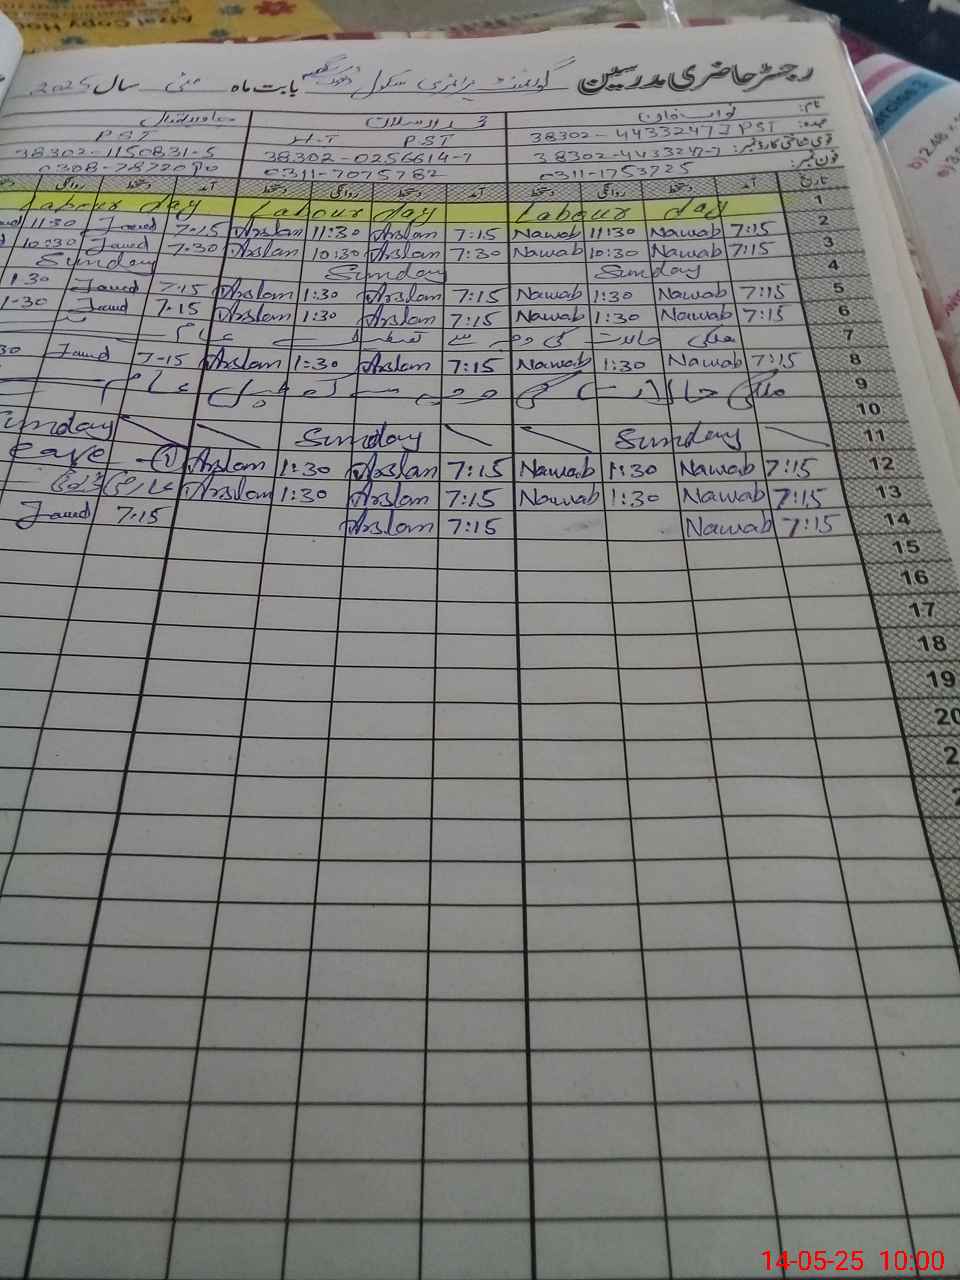 رجسٹر حاضری مدرسین گورنمنٹ پرائمری سکول بابت ماہ مئی سال 2025
نام: نواب خان محمد ارسلان جاوید اقبال
عہدہ: 38302-4433247-7 PST PST H.T PST
قومی شناختی کارڈ نمبر: 38302-4433247-7 38302-0256614-7 38302-1150831-5
فون نمبر: 0311-1753725 0311-7075782
تاریخ آمد دستخط روانگی دستخط آمد دستخط روانگی دستخط آمد دستخط روانگی دستخط
1 Labour day Labour day Labour day
2 7:15 Nawab 11:30 Nawab 7:15 Arslan 11:30 Arslan 7.15 Jawd 11:30
3 7:15 Nawab 10:30 Nawab 7:30 Arslan 10:30 Arslan 7.30 Jawd 10:30
4 Sunday Sunday Sunday
5 7:15 Nawab 1:30 Nawab 7:15 Arslan 1:30 Arslan 7.15 Jawd 1.30
6 7:15 Nawab 1:30 Nawab 7:15 Arslan 1:30 Arslan 7.15 Jawd 1-30
7 ملکی حالات کی وجہ سے تعطیل عام
8 7:15 Nawab 1:30 Nawab 7:15 Arslan 1:30 Arslan 7-15 Jawd 30
9 ملکی حالات کی وجہ سے عام
10
11 Sunday Sunday Sunday
12 7:15 Nawab 1:30 Nawab 7:15 Arslan 1:30 Arslan 1
13 7:15 Nawab 1:30 Nawab 7:15 Arslan 1:30 Arslan
14 7:15 Nawab 7:15 Arslan 7.15 Jawd
15
16
17
18
19
20
2
2
14-05-25 10:00